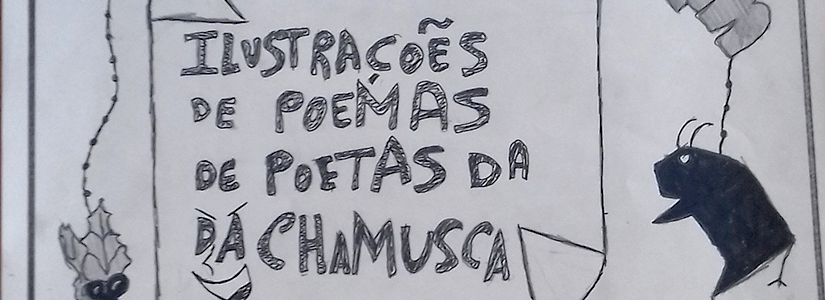 ILUSTRAÇÕES
DE POEMAS
DE POETAS DA
DA CHAMUSCA